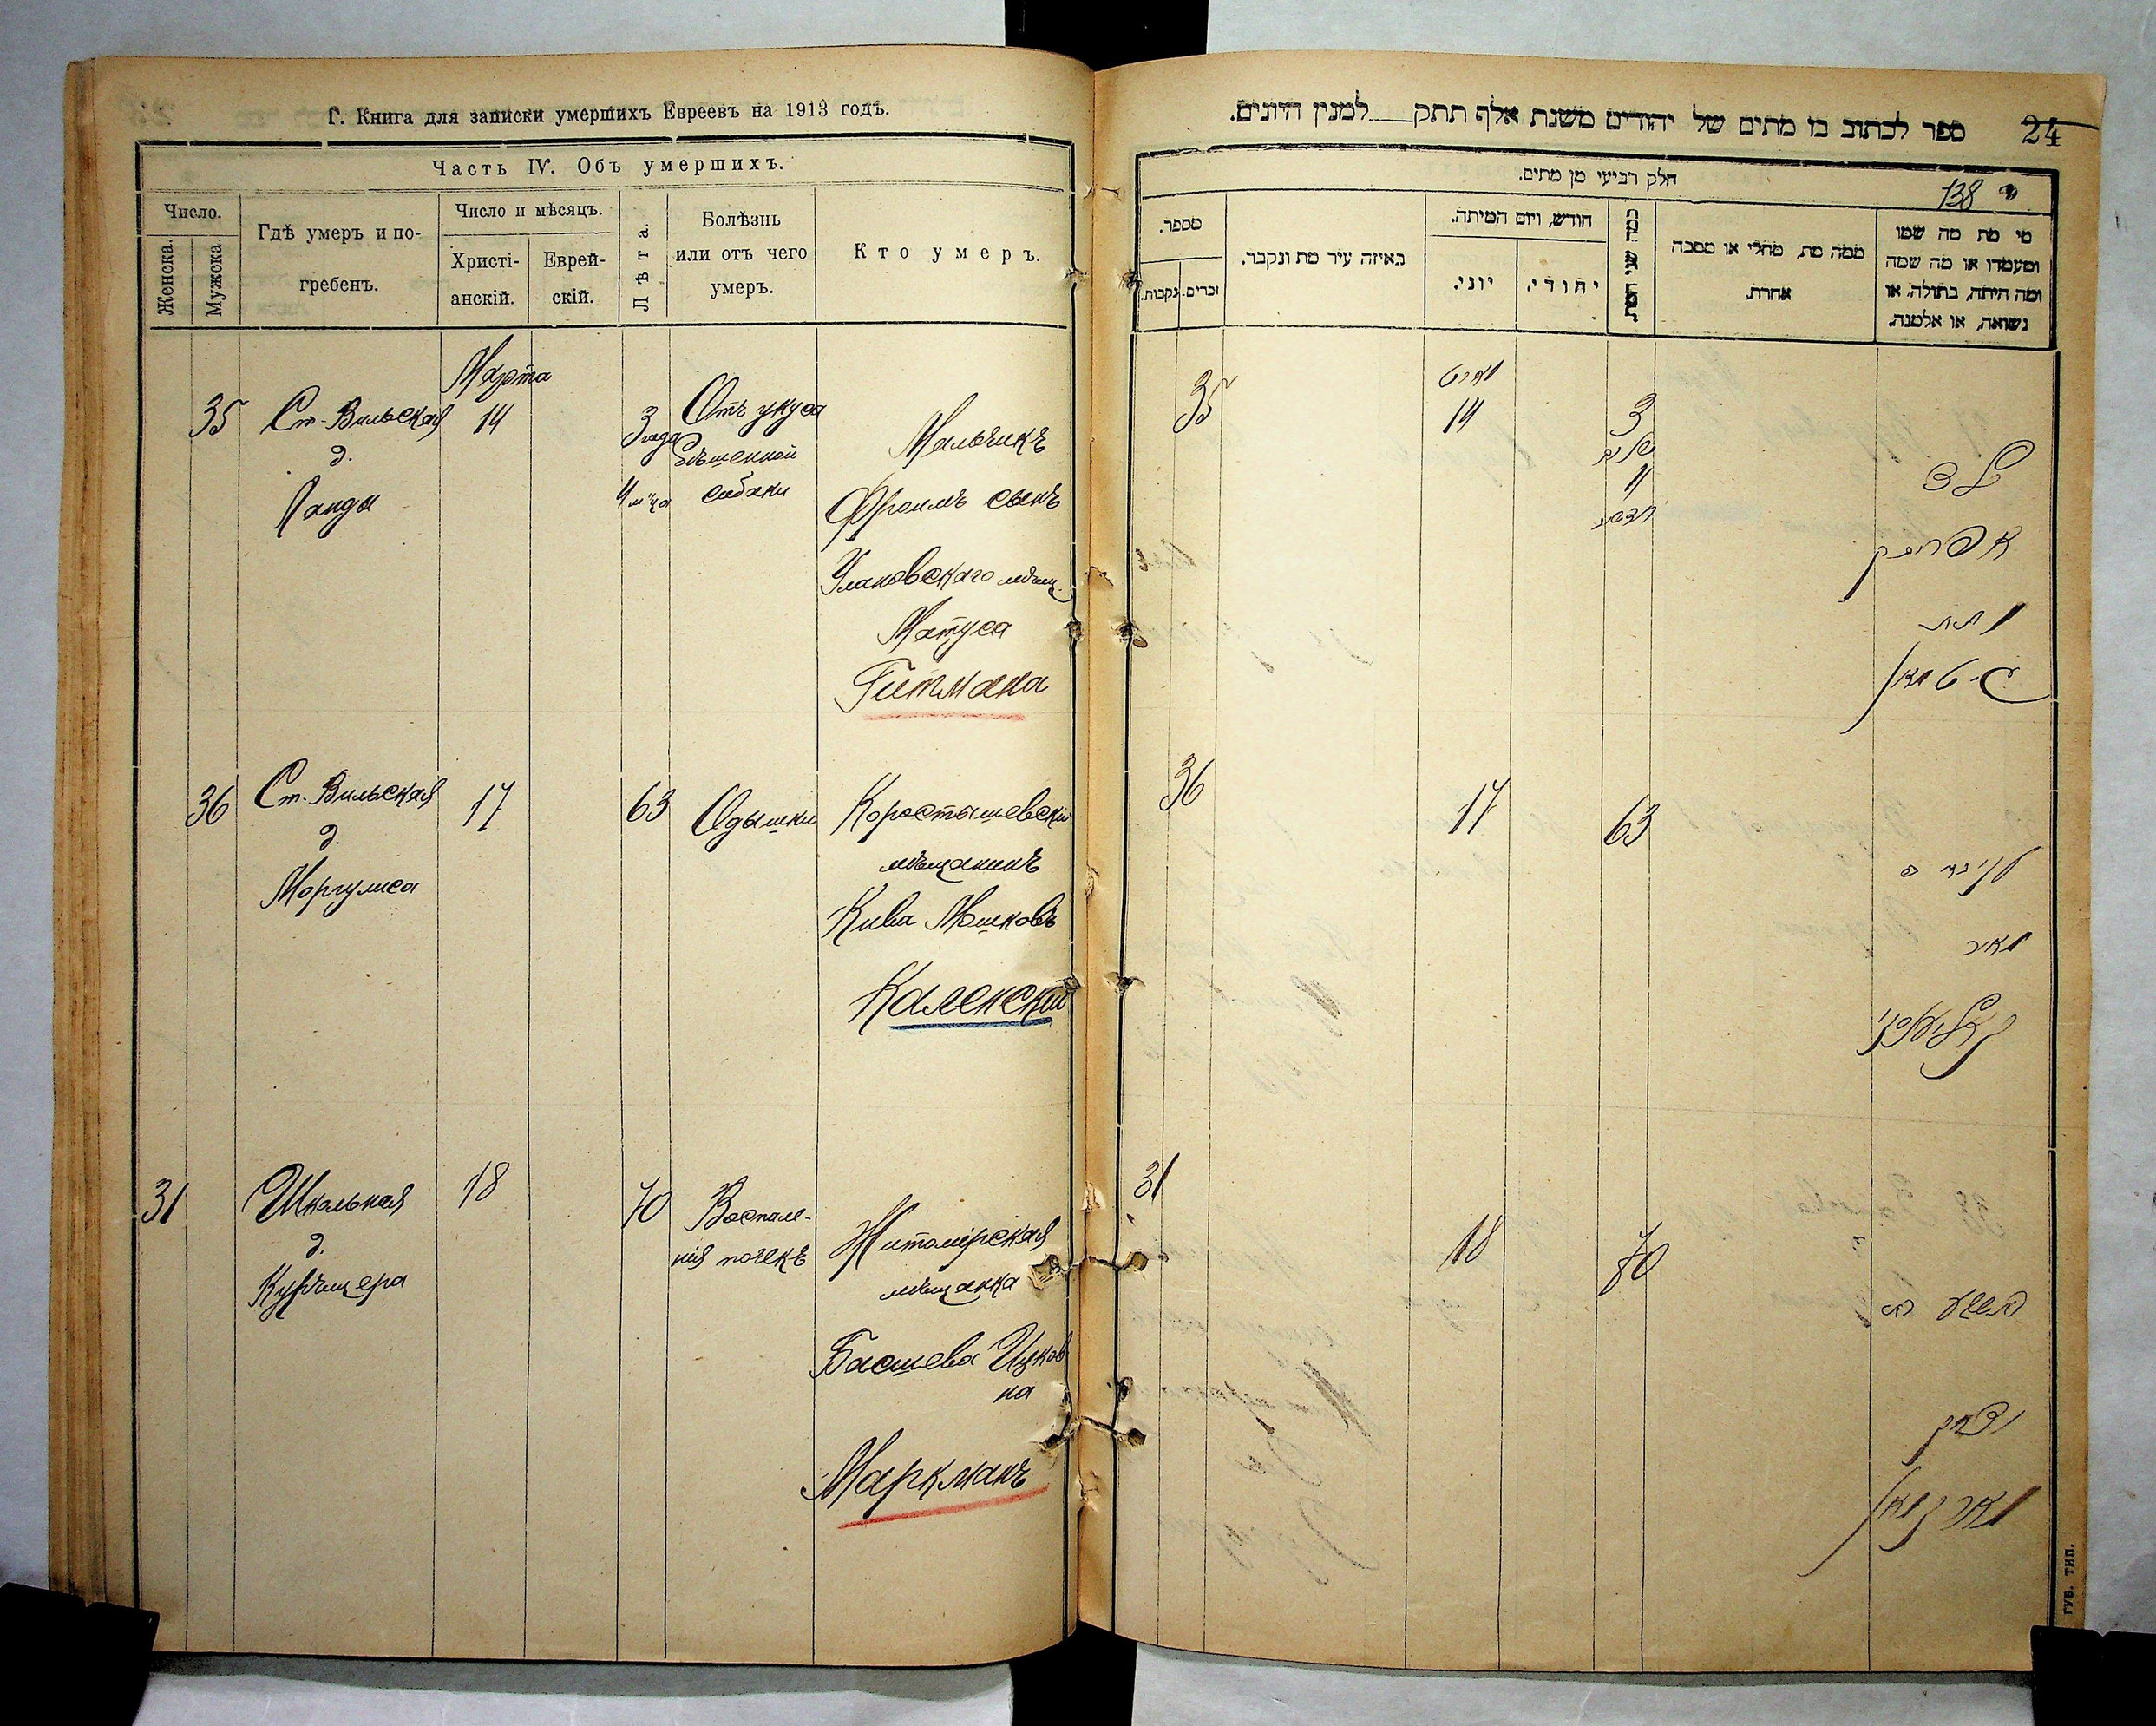 Г. Книга для записки умершихъ Евреевъ на 1913 годъ.
Часть IV. Объ умершихъ.
Число.
Женска.
Мужска.
Гдѣ умеръ и по-
гребенъ.
Число и мѣсяцъ.
Христі-
анскій.
Еврей-
скій.
Лѣта.
Болѣзнь
или отъ чего
умеръ.
Кто умеръ.
Марта
35
Ст.-Вильская
д.
Ланда
14
3 года
4 м-ца
Отъ укуса
бѣшенной
собаки
Мальчикъ
Фроимъ сынъ
мѣщ.
Матуса
Гитмана
36
Ст.-Вильская
д.
Моргулиса
17
63
Одышки
Коростышевскій
мѣщанинъ
Кива Мошковъ
Каленскій
31
Школьная
д.
18
70
Воспале-
нія почекъ
Житомірская
мѣщанка
Басшева Ицков
на
Маркманъ
24
ספר לכתוב בו מתים של יהודים משנת אלף תתק למנין היונים.
138
חלק רביעי מן מתים.
מספר.
זכרים.
נקבות.
באיזה עיר מת ונקבר.
חודש, ויום המיתה.
יוני.
יהודי.
כמה שני המת
ממה מת, מחלי או מסבה
אחרת.
מי מת מה שמו
ומעמדו או מה שמה
ומה היתה, בתולה, או
נשואה, או אלמנה.
35
מארט
14
3
4
ילד
אפרים
גיטמאן
36
17
63
מאיר
31
18
70
יצחק
מארקמאן
ГУБ. ТИП.